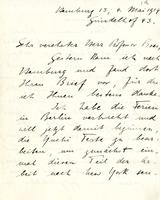 Hamburg 13, 4. Mai 1914
Grindelhof 43.
Sehr verehrter Herr Professor Boas,
Gestern kam ich nach
Hamburg und fand dort
Ihren Brief vor, für den
ich Ihnen bestens danke.
Ich habe die Ferien
in Berlin verbracht und
will jetzt damit beginnen,
die Texte zu bear-
beiten, um zunächst ein-
mal diesen Teil der Ar-
beit nach New York sen-